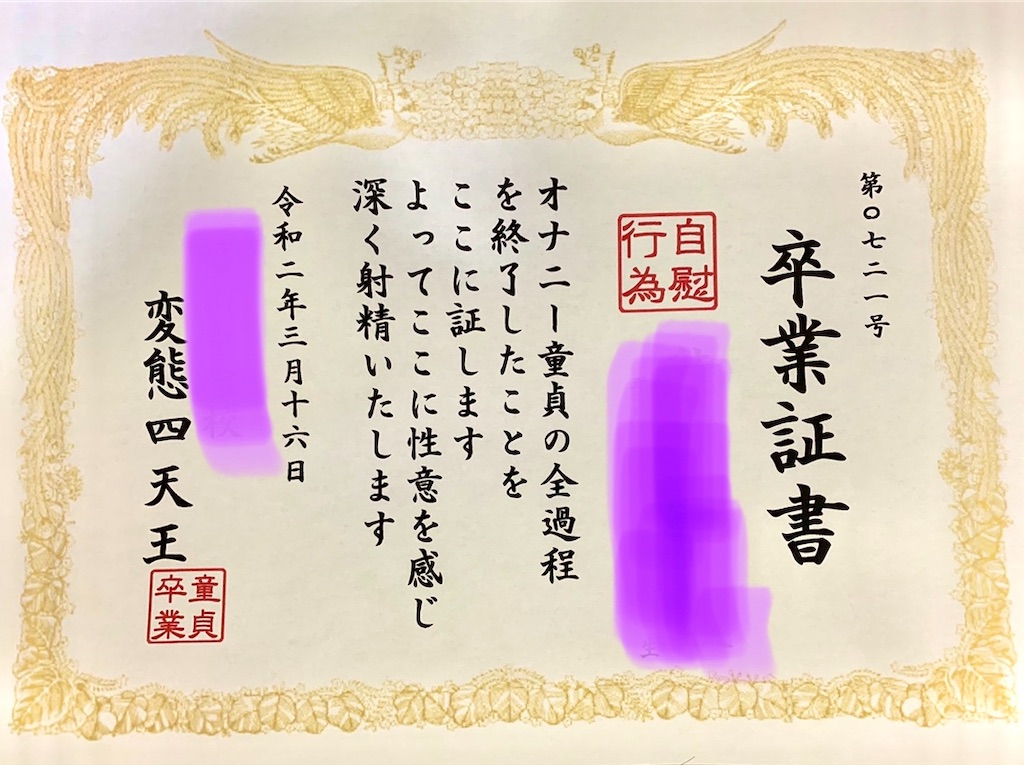 第〇七二一号
卒業証書
自慰
行為
オナニー童貞の全過程
を終了したことを
ここに証します
よってここに性意を感じ
深く射精いたします
令和二年三月十六日
変態四天王
童貞
卒業